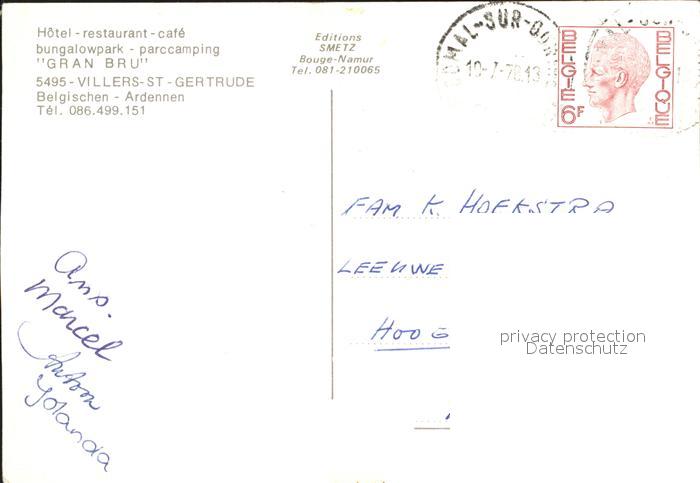 Hôtel - restaurant - café
bungalowpark - parccamping
"GRAN BRU"
5495 - VILLERS - ST - GERTRUDE
Belgischen - Ardennen
Tél. 086.499.151
Editions
SMETZ
Bouge-Namur
Tel. 081-210065
MAL-SUR-OU
BELGIË
6F
BELGIQUE
FAM K. HOEKSTRA
LEEUWE
HOOG
privacy protection
Datenschutz
Ans.
Marcel
Anton
Yolanda